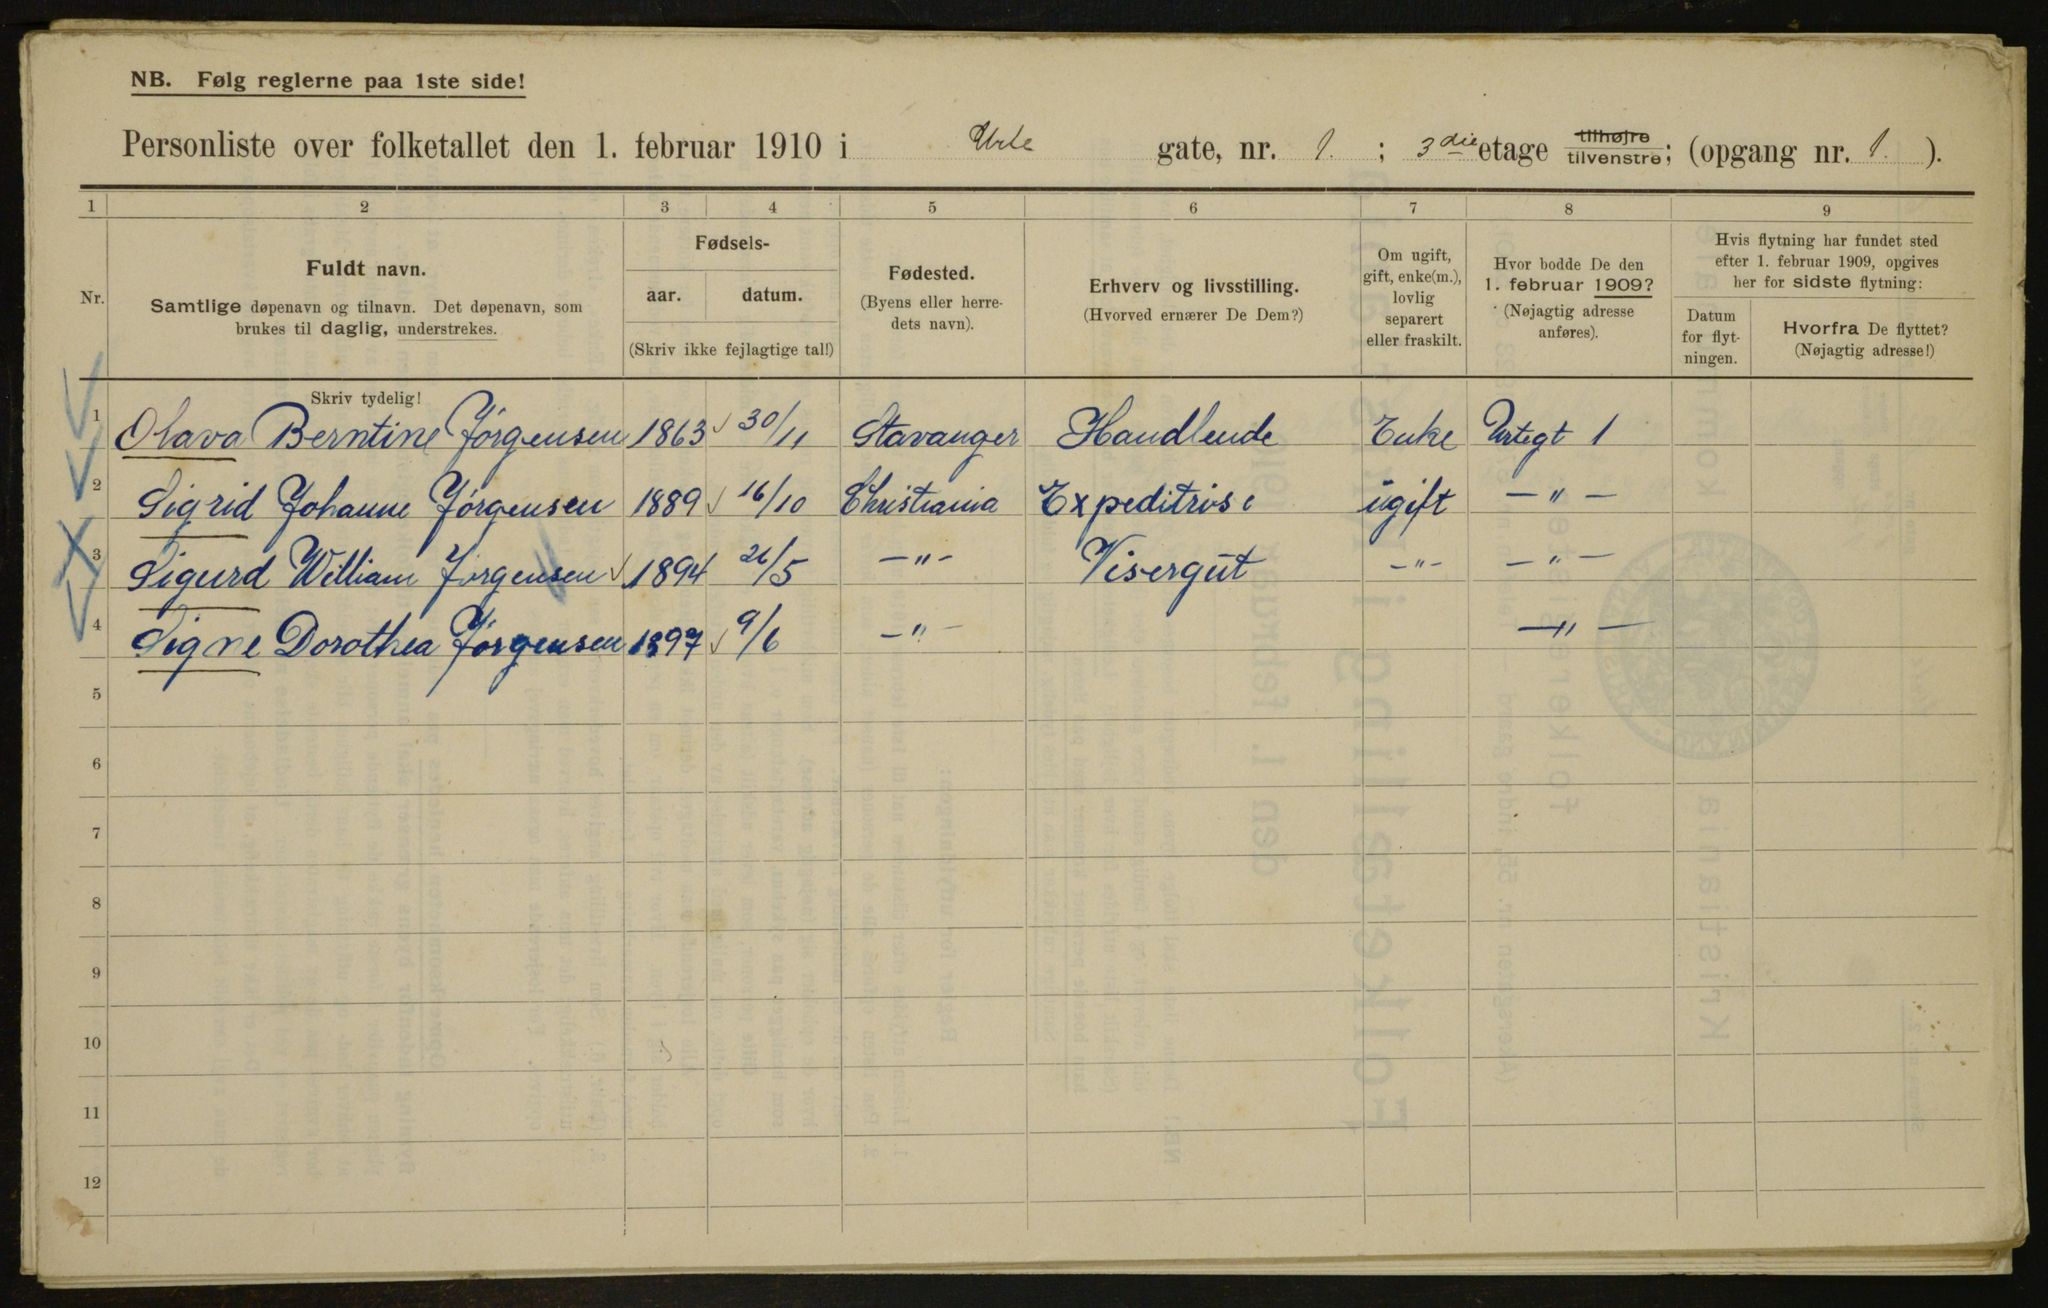 NB. Følg reglerne paa 1ste side!
Personliste over folketallet den 1. februar 1910 i Urte gate, nr. 1. ; 3die etage tilhøjre tilvenstre; (opgang nr. 1. ).
1 2 3 4 5 6 7 8 9
Nr.
Fuldt navn.
Samtlige døpenavn og tilnavn. Det døpenavn, som
brukes til daglig, understrekes.
Fødsels-
aar. datum.
(Skriv ikke fejlagtige tal!)
Fødested.
(Byens eller herre-
dets navn).
Erhverv og livsstilling.
(Hvorved ernærer De Dem?)
Om ugift,
gift, enke(m.),
lovlig
separert
eller fraskilt.
Hvor bodde De den
1. februar 1909?
(Nøjagtig adresse
anføres).
Hvis flytning har fundet sted
efter 1. februar 1909, opgives
her for sidste flytning:
Datum
for flyt-
ningen.
Hvorfra De flyttet?
(Nøjagtig adresse!)
Skriv tydelig!
1 Olava Berntine Jørgensen 1863 30/11 Stavanger Handlende Enke Urtegt 1
2 Sigrid Johanne Jørgensen 1889 16/10 Christiania Expeditrise ugift — " —
3 Sigurd William Jørgensen 1894 26/5 — " — Visergut — " — — " —
4 Signe Dorothea Jørgensen 1897 9/6 — " — — " —
5
6
7
8
9
10
11
12